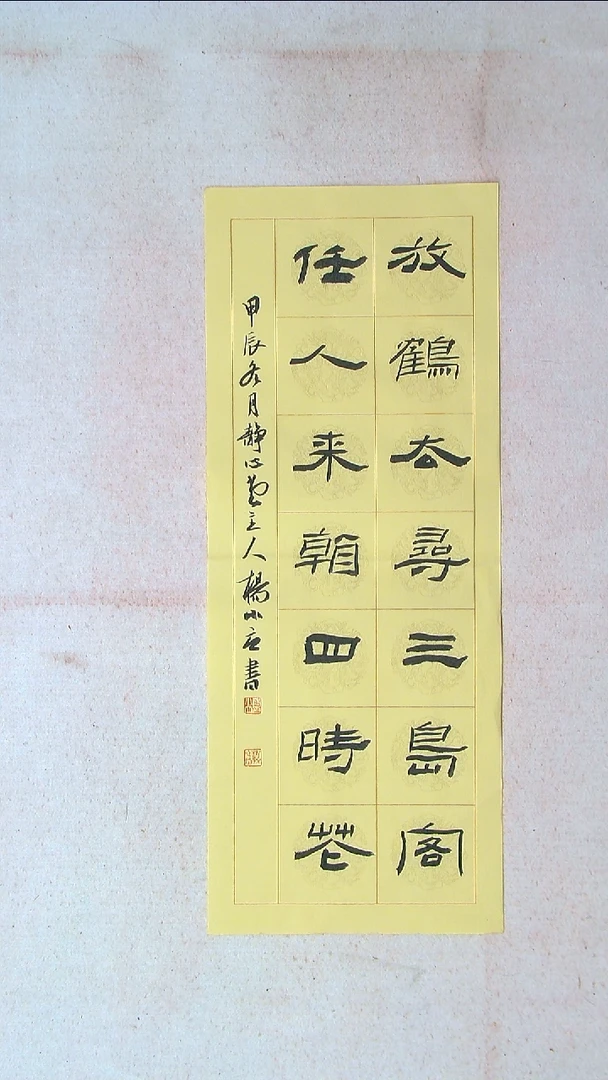 放鶴去尋三島客
任人来朝四時花
甲辰冬月静心堂主人楊小書